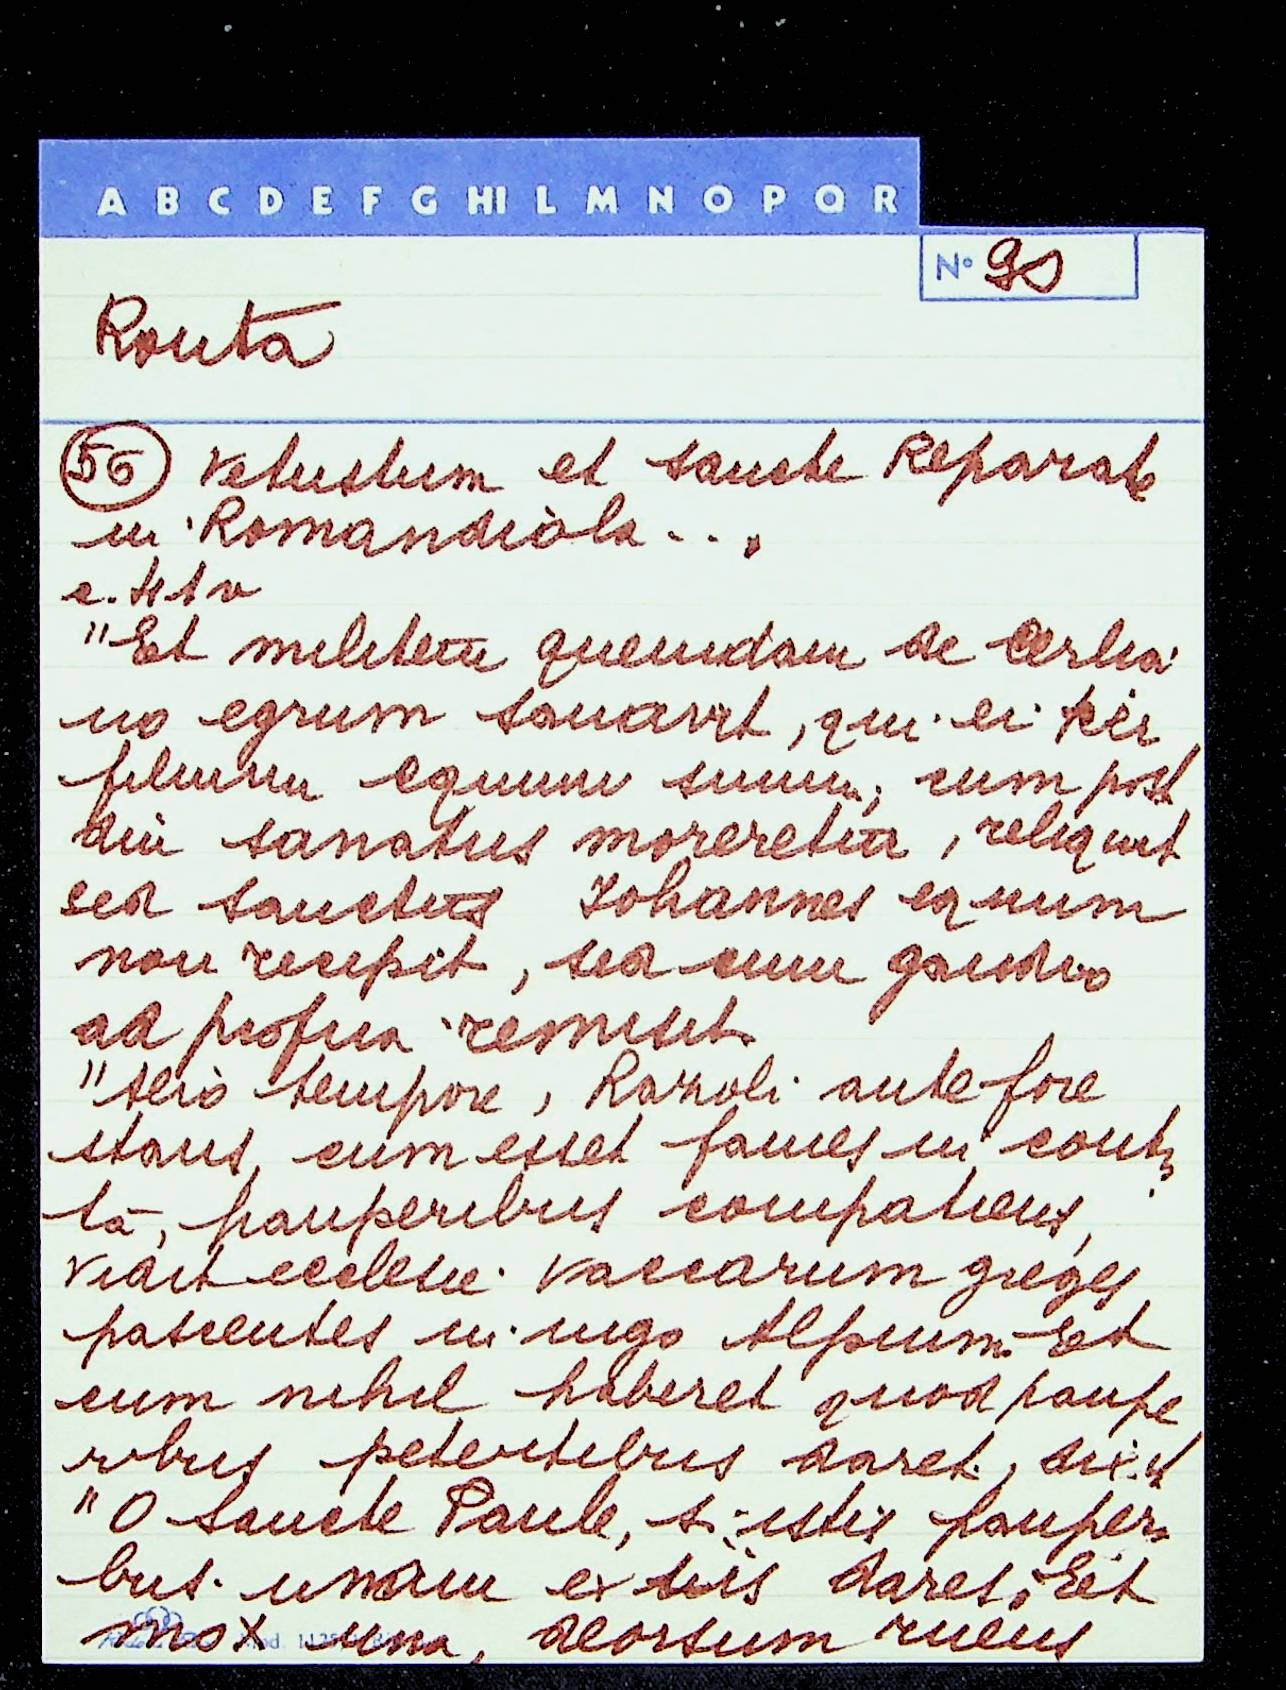 A B C D E F G HI L M N O P Q R
N° 90
Routa
56 Vetustum et sancte Reparate
in Romandiola...
c. 41 v
"Et militem quemdam de Certia
no egrum sanavit, qui ei
equum suum; cum post
diu sanatus moreretur, reliquit
sed sanctus Iohannes equum
non recepit, sed cum gaudio
ad propria remisit.
"Alio tempore, ante fore
stans, cum esset fames in
ta, pauperibus compatiens,
vidit ecclesie vaccarum greges
pascentes in iugo Alpium. Et
cum nihil haberet quod paupe
ribus petentibus daret, dixit
"O Sancte Paule, si istis pauperi
bus unam ex tuis dares. Et
mox una, deorsum ruens